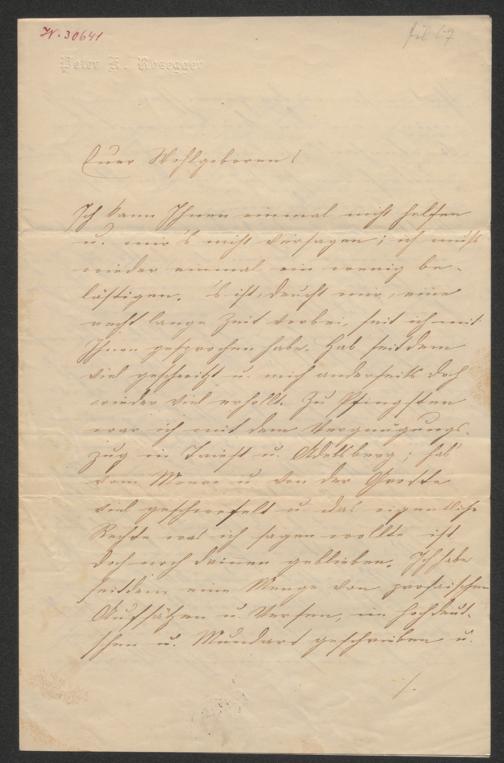 N. 30641
Peter K. Rosegger
Euer Wohlgeboren!
Ich kann Ihnen einmal nicht helfen
u. mir's nicht versagen; ich muß
wieder einmal ein wenig be-
lästigen. 's ist, deucht mir, eine
recht lange Zeit vorbei, seit ich mit
Ihnen gesprochen habe. Hab seitdem
viel geschwitzt u. mich anderseits doch
wieder viel erholt. Zu Pfingsten
war ich mit dem Vergnügungs-
zug in Triest u. Adelsberg; hab
vom Meere u von der Grotte
viel geschwefelt u das eigentliche
Rechte was ich sagen wollte ist
doch noch drinen geblieben. Ich habe
seitdem eine Menge von prosaischen
Aufsätzen u Versen, in hochdeut-
schen u. Mundart geschrieben u.
./.